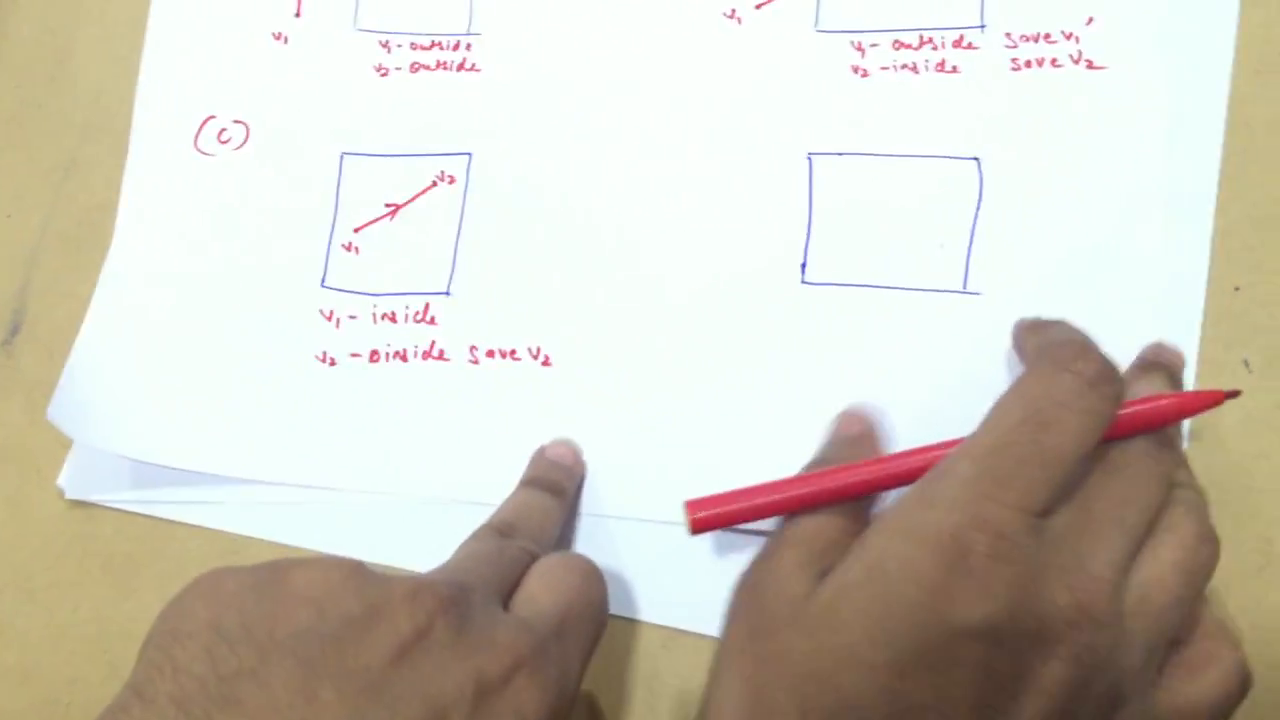 v₁
v₁ - outside
v₂ - outside
v₁
v₁ - outside save v₁'
v₂ - inside save v₂
(C)
v₂
v₁
v₁ - inside
v₂ - inside save v₂